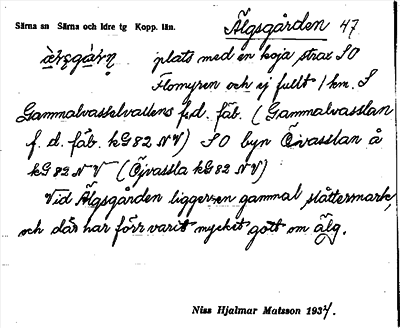 Särna sn Särna och Idre tg Kopp. län. Älgsgården 47
plats med en koja strax SO
Flomyren och ej fullt 1 km. S
Gammalvasselvallens f.d. fäb. (Gammalvasslan
f. d. fäb. kG82 NV) SO byn Öjvasslan å
kG82 NV (Öjvassla kG82 NV)
Vid Älgsgården ligger en gammal slåttermark,
och där har förr varit mycket gott om älg.
Niss Hjalmar Matsson 193